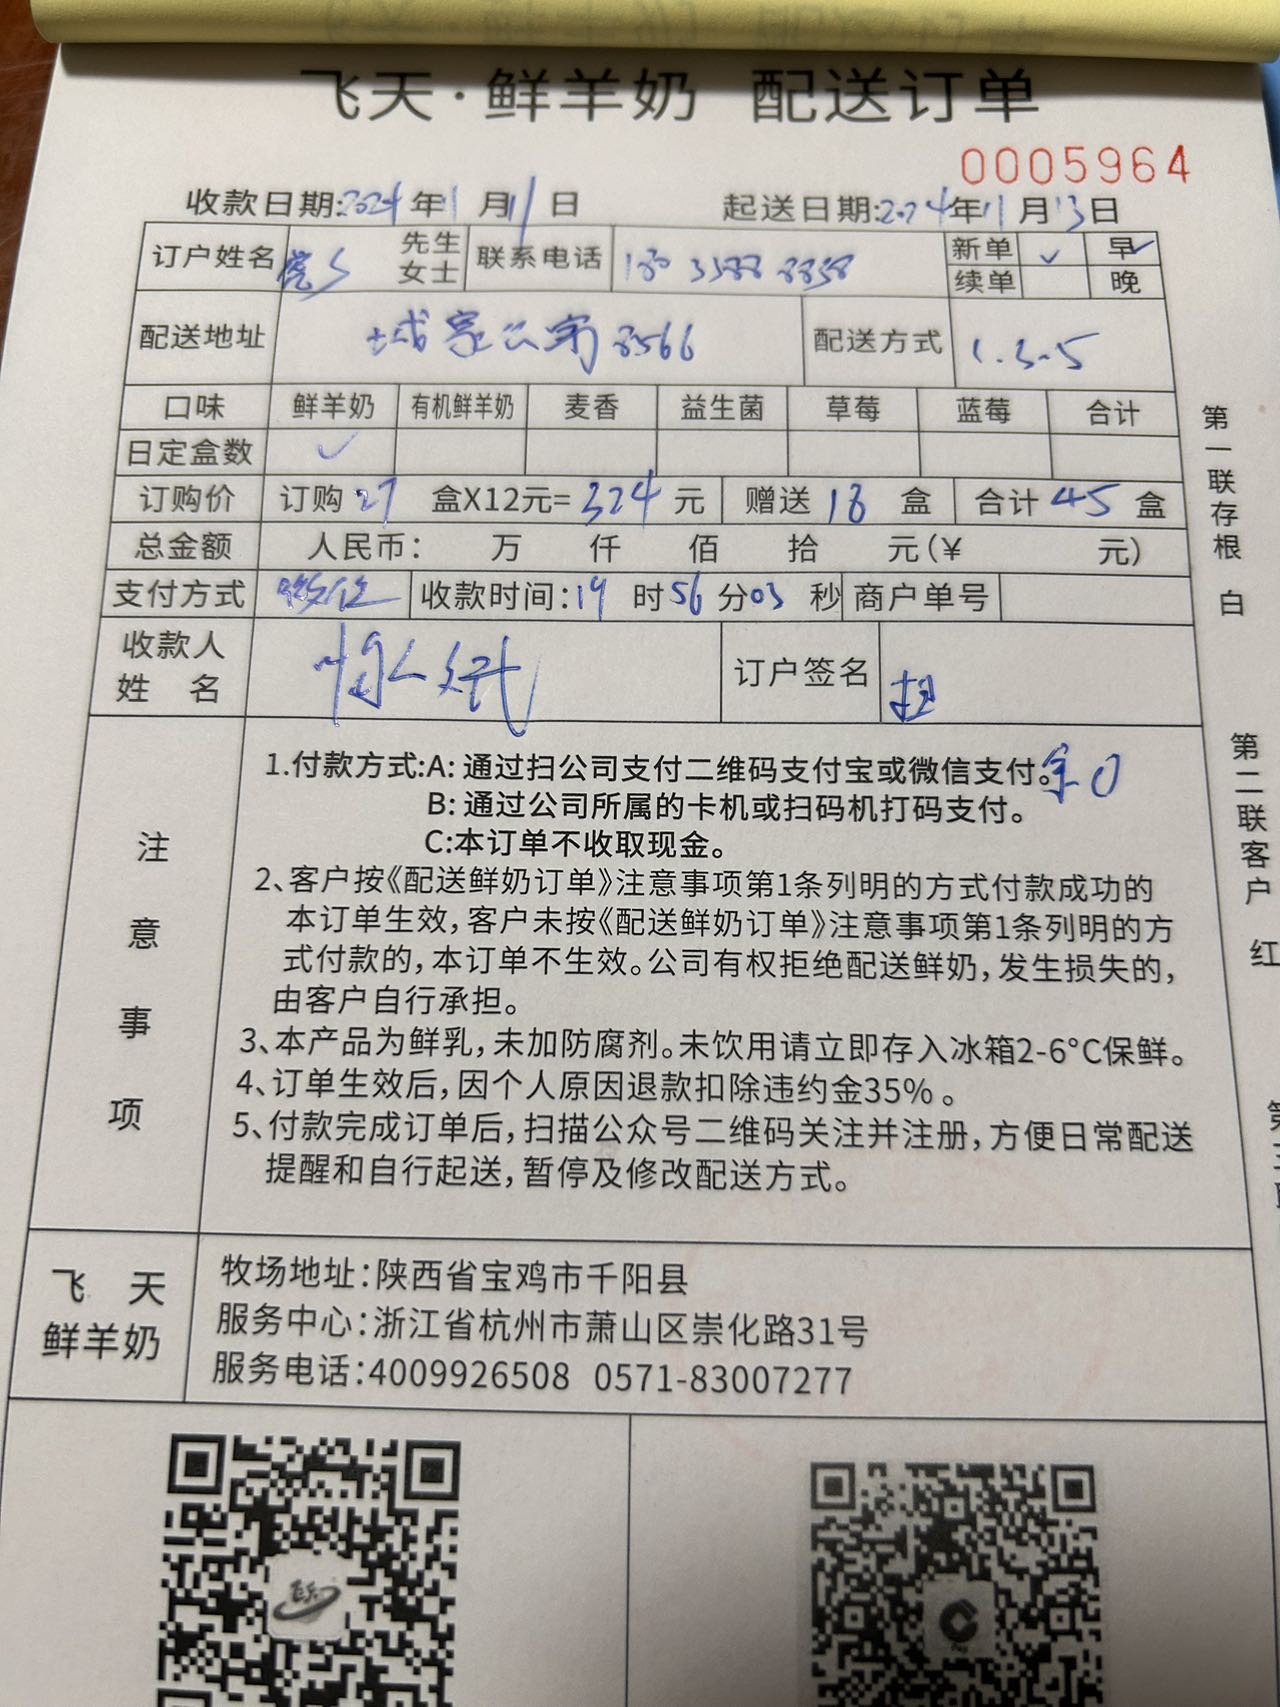 飞天·鲜羊奶 配送订单
0005964
收款日期:2024年11月11日 起送日期:2024年11月13日
订户姓名 先生 女士 联系电话 180 3588 8858 新单 ✓ 早 ✓
续单 晚
配送地址 城家公寓8566 配送方式 1.3.5
口味 鲜羊奶 有机鲜羊奶 麦香 益生菌 草莓 蓝莓 合计
日定盒数 ✓
订购价 订购 27 盒X12元= 324 元 赠送 18 盒 合计 45 盒
总金额 人民币： 万 仟 佰 拾 元(¥ 元)
支付方式 微信 收款时间:19 时 56 分 03 秒 商户单号
收款人
姓 名
订户签名
注意事项
1.付款方式:A: 通过扫公司支付二维码支付宝或微信支付。
B: 通过公司所属的卡机或扫码机打码支付。
C:本订单不收取现金。
2、客户按《配送鲜奶订单》注意事项第1条列明的方式付款成功的
本订单生效，客户未按《配送鲜奶订单》注意事项第1条列明的方
式付款的，本订单不生效。公司有权拒绝配送鲜奶，发生损失的，
由客户自行承担。
3、本产品为鲜乳，未加防腐剂。未饮用请立即存入冰箱2-6°C保鲜。
4、订单生效后，因个人原因退款扣除违约金35%。
5、付款完成订单后，扫描公众号二维码关注并注册，方便日常配送
提醒和自行起送，暂停及修改配送方式。
飞 天
鲜羊奶
牧场地址：陕西省宝鸡市千阳县
服务中心：浙江省杭州市萧山区崇化路31号
服务电话：4009926508 0571-83007277
第一联存根 白
第二联客户 红